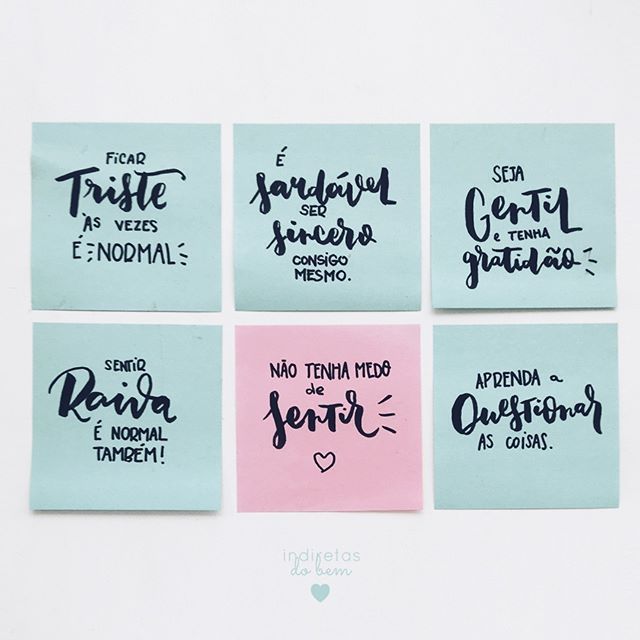 FICAR
Triste
ÀS VEZES
É NORMAL
É
saudável
SER
sincero
CONSIGO
MESMO.
SEJA
Gentil
e TENHA
gratidão
SENTIR
Raiva
É NORMAL
TAMBÉM!
NÃO TENHA MEDO
de
Sentir
APRENDA a
Questionar
AS COISAS.
indiretas
do bem